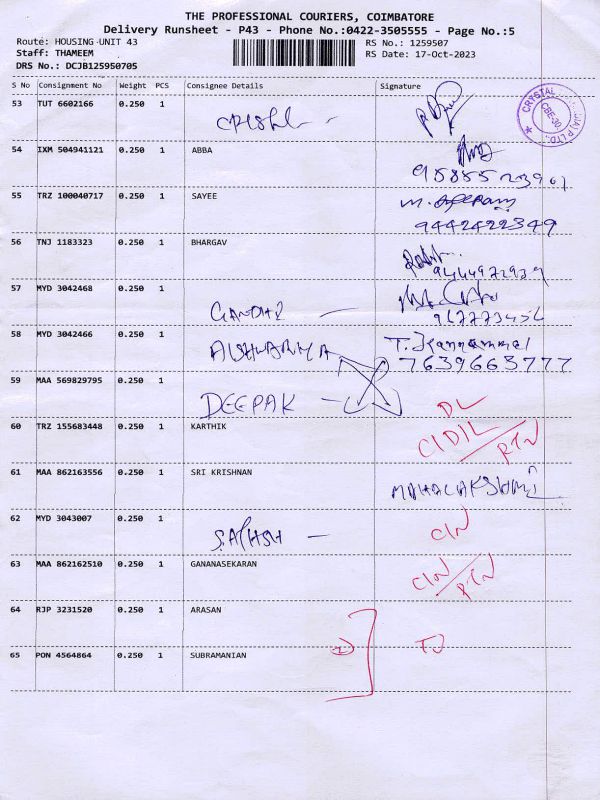 THE PROFESSIONAL COURIERS, COIMBATORE
Delivery Runsheet - P43 - Phone No.:0422-3505555 - Page No.:5
Route: HOUSING UNIT 43
RS No.: 1259507
Staff: THAMEEM
RS Date: 17-Oct-2023
DRS No.: DCJB125950705
S No Consignment No Weight PCS Consignee Details Signature
53 TUT 6602166 0.250 1
CRYSTAL CBE-30 P LTD.
54 IXM 504941121 0.250 1 ABBA
55 TRZ 100040717 0.250 1 SAYEE
9442422349
56 TNJ 1183323 0.250 1 BHARGAV
9444972939
57 MYD 3042468 0.250 1
GANDHI
58 MYD 3042466 0.250 1
AISHWARYA
T. Kannammal
7639663777
59 MAA 569829795 0.250 1
DEEPAK
60 TRZ 155683448 0.250 1 KARTHIK
DL
RTN
61 MAA 862163556 0.250 1 SRI KRISHNAN
MAHALAKSHMI
62 MYD 3043007 0.250 1
SATHSH
CIN
63 MAA 862162510 0.250 1 GANANASEKARAN
CIN/RTN
64 RJP 3231520 0.250 1 ARASAN
65 PON 4564864 0.250 1 SUBRAMANIAN